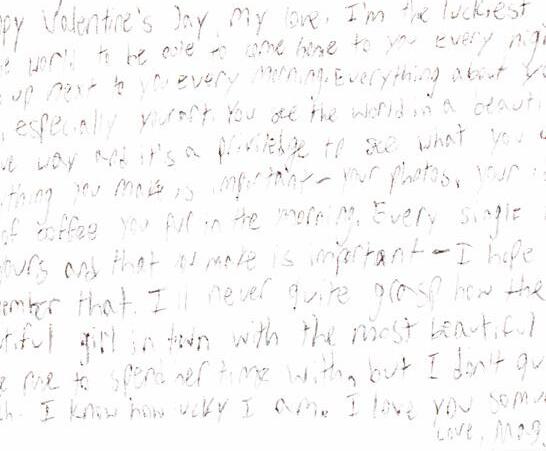 ppy Valentine's Day, my love. I'm the luckiest
e world to be able to come home to you every nig
up next to you every morning. Everything about yo
, especially your art. You see the world in a beauti
ve way and it's a privilidge to see what you
thing you make is important - your photos, your
of coffee you in the morning. Every single
yours and that you make is important - I hope
ember that. I'll never quite grasp how the
tiful girl in town with the most beautiful
e me to spend her time with, but I don't qu
h. I know how ucky I am. I love you so mu
Love, Mag